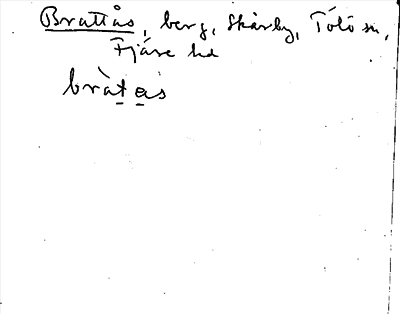 Brattås, berg, Skårby, Tölö sn,
Fjäre hd
bràtas